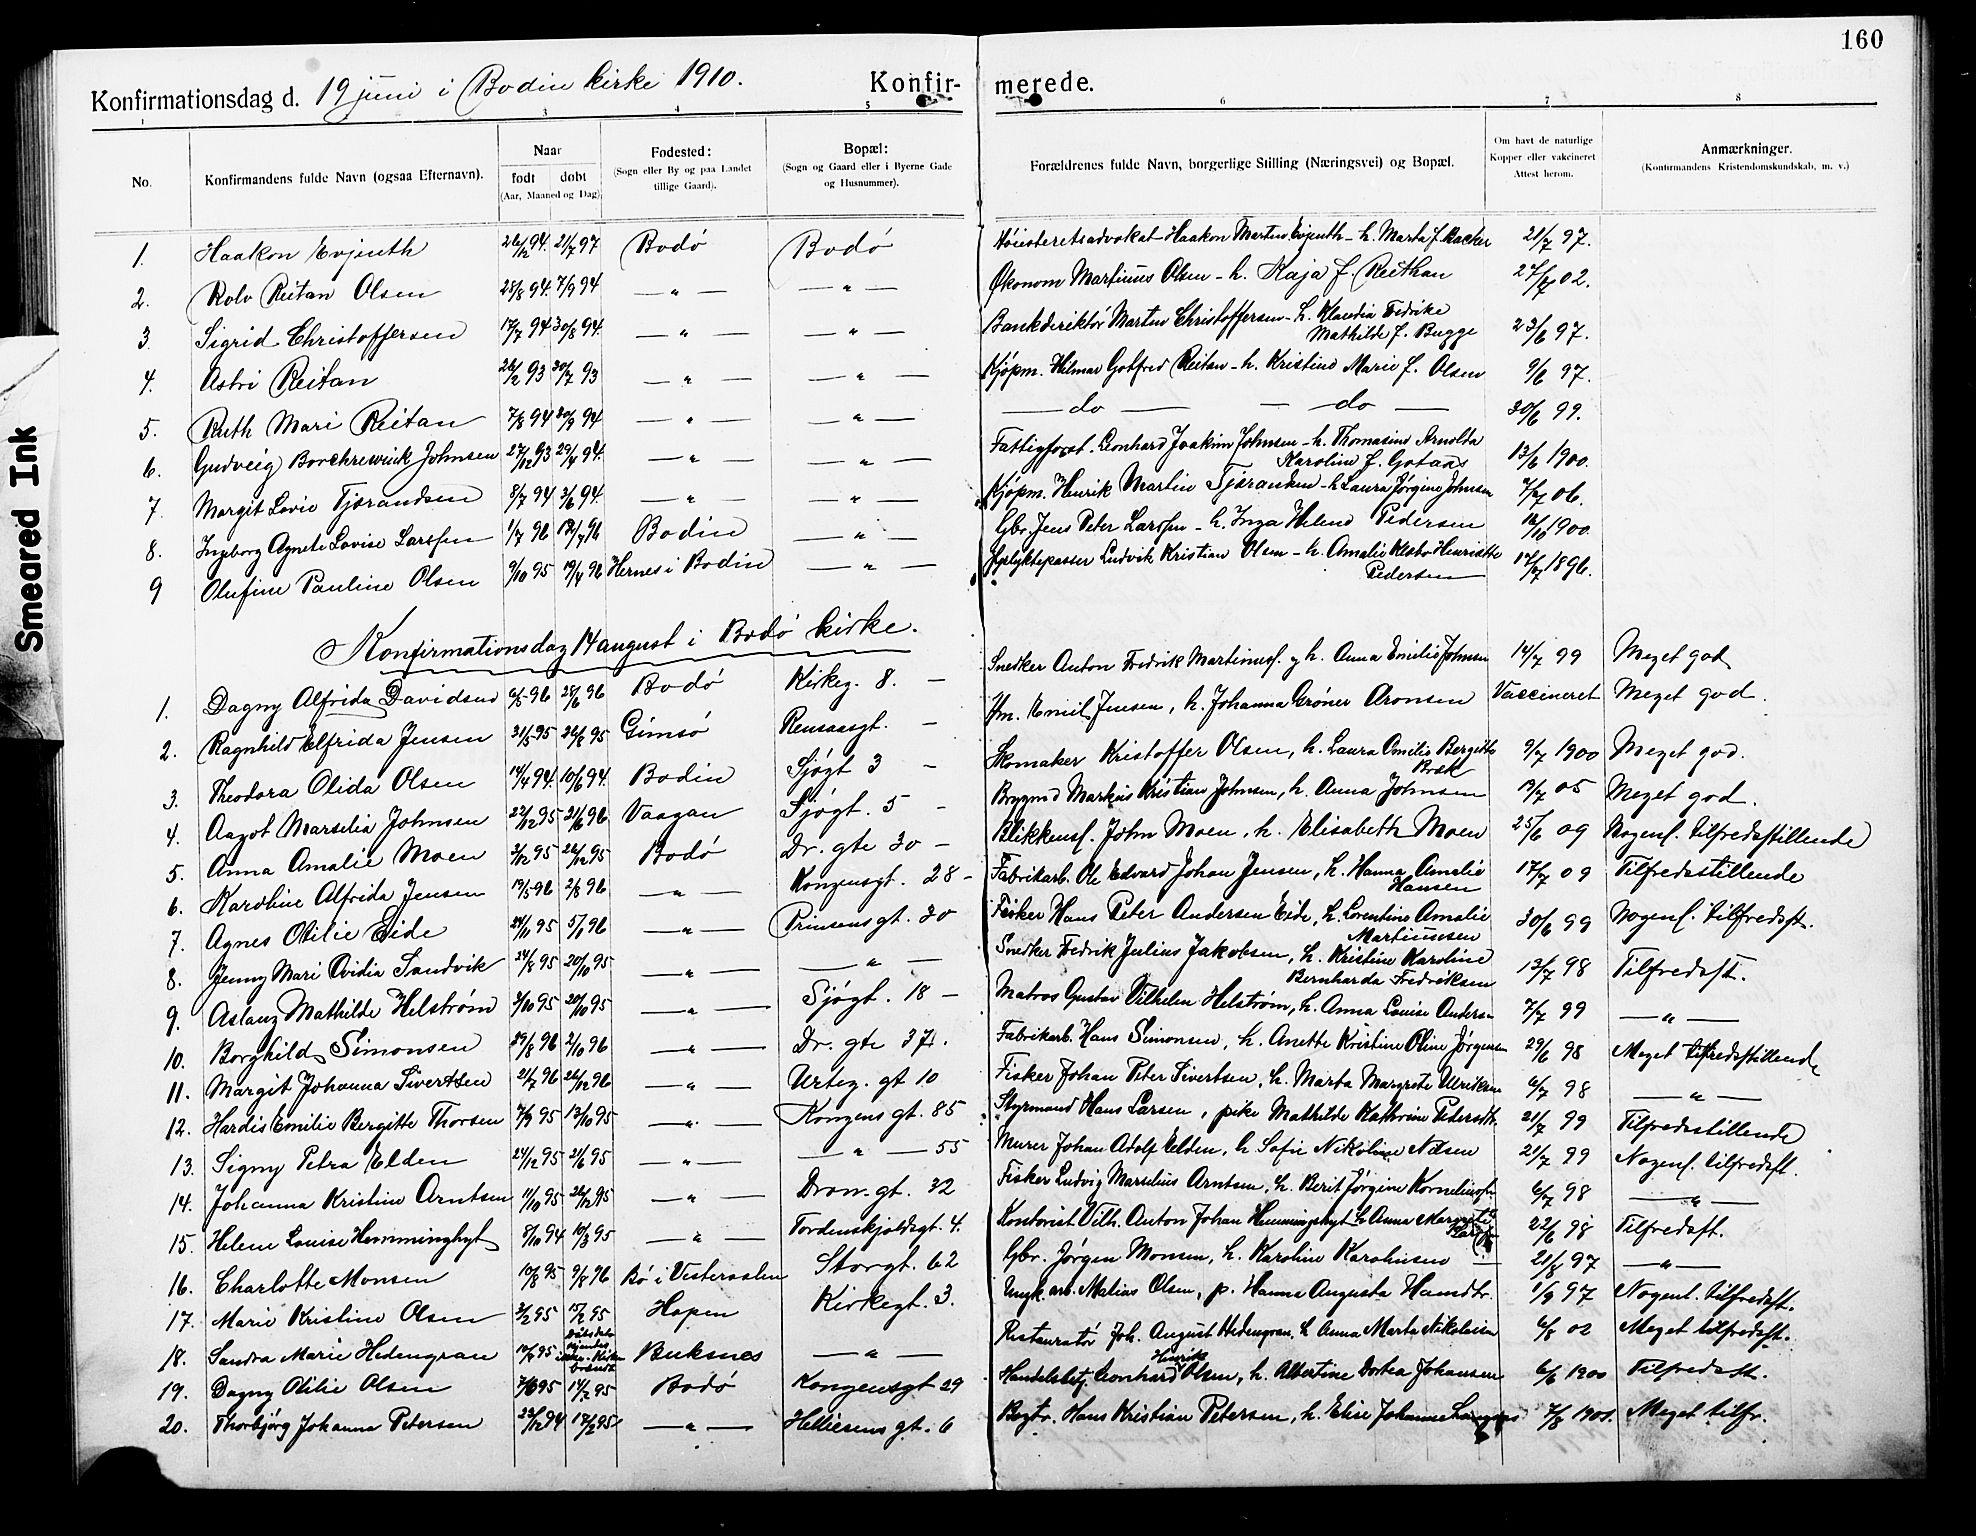 160
Konfirmationsdag d. 19 juni i Bodin kirke 1910. Konfir- merede.
1 3 4 5 6 7 8
No. Konfirmandens fulde Navn (ogsaa Efternavn). Naar født døbt (Aar, Maaned og Dag) Fødested: (Sogn eller By og paa Landet tillige Gaard). Bopæl: (Sogn og Gaard eller i Byerne Gade og Husnummer). Forældrenes fulde Navn, borgerlige Stilling (Næringsvei) og Bopæl. Om havt de naturlige Kopper eller vakcineret Attest herom. Anmærkninger. (Konfirmandens Kristendomskundskab, m. v.)
1. Haakon Evjenth 26/12 94. 21/7 97 Bodö Bodö Höiesteretsadvokat Haakon Martin Evjenth - h. Marta f. Backer 21/7 97.
2. Rolv Reitan Olsen 28/8 94. 7/9 94 —"— —"— Økonom Martinus Olsen - h. Kaja f. Reithan 27/7 02.
3. Sigrid Christoffersen 17/7 94 30/8 94. —"— —"— Bankdirektör Martin Christoffersen - h. Klaudia Fedrike
Mathilde f. Bugge 23/6 97.
4. Astri Reitan 26/2 93 30/7 93 —"— —"— Kjöpm. Hilmar Gotfred Reitan - h. Kristine Marie f. Olsen 9/6 97.
5. Ruth Mari Reitan 7/8 94 30/9 94 —"— —"— — do — — do — 30/6 99.
6. Gudveig Borchrewink Johnsen 27/12 93 29/4 94. —"— —"— Fattigforst. Leonhard Joakim Johnsen - h. Thomasine Arnolda
Karoline f. Gotaas 13/6 1900.
7. Margit Lovie Tjærandsen 8/7 94 3/6 94. —"— —"— Kjöpm. Henrik Martin Tjærandsen - h. Laura Jörgine Johnsen 7/7 06.
8. Ingeborg Agnete Lovise Larssen 1/7 96 12/7 96 Bodin —"— Gbr. Jens Peter Larssen - h. Inga Helene Pedersen 12/10 1900.
9 Olufine Pauline Olsen 9/10 95 19/4 96 Hernes i Bodin —"— Fyrlyktepasser Ludvik Kristian Olsen - h. Amalie Henriette
Pedersen 14/7 1896.
Konfirmationsdag 14 august i Bodö kirke.
1. Dagny Alfrida Davidsen 6/5 96 28/6 96 Bodö Kirkeg. 8. — Snedker Anton Fredrik Martinuss. og h. Anna Emilie Johnsen 14/7 99 Meget god
2. Ragnhild Elfrida Jensen 31/5 95 26/8 95 Gimsö Rensaasgt. — Hm. Emil Jensen, h. Johanna Gröner Aronsen Vaccineret Meget god.
3. Theodora Olida Olsen 14/4 94. 10/6 94. Bodin Sjögt 3 — Skomaker Kristoffer Olsen, h. Laura Emilie Bergitte
Bræk 9/7 1900 Meget god.
4. Aagot Marselia Johnsen 22/12 95 21/6 96 Vaagan Sjögt. 5 — Brygmd Markus Kristian Johnsen, h. Anna Johnsen 19/7 05 Meget god.
5. Anna Amalie Moen 3/12 95 26/12 95 Bodö Dr. gte 30 — Blikkensl. John Moen, h. Elisabeth Moen 25/6 09 Nogenl. tilfredsstillende
6. Karoline Alfrida Jensen 19/5 96 2/8 96 —"— Kongensgt. 28 — Fabrikarb. Ole Edvard Johan Jensen, h. Hanna Amalie
Hansen 17/7 09 Tilfredsstillende
7. Agnes Otilie Eide 24/11 95 5/1 96 —"— Prinsens gt. 30 Fisker Hans Peter Andersen Eide, h. Lorentine Amalie
Martinussen 30/6 99 Nogenl. tilfredsst.
8. Jenny Mari Ovidia Sandvik 24/8 95 20/10 95 —"— —"— Snedker Fredrik Julius Jakobsen, h. Kristine Karoline
Bernharda Fredriksen 13/7 98 Tilfredsst.
9. Aslaug Mathilde Helström 3/10 95 20/10 95 —"— Sjögt. 18 — Matros Gustav Vilhelm Helström, h. Anna Louise Anders. 7/7 99 —"—
10. Borghild Simonsen 29/8 96 2/10 96 —"— Dr. gte 37. Fabrikarb. Hans Simonsen, h. Anette Kristine Oline Jörgensen 29/6 98 Meget tilfredsstillende
11. Margit Johanna Sivertsen 21/7 96 26/12 96 —"— Urteg. gt 10 Fisker Johan Peter Sivertsen, h. Marta Margrete Ulriksen 6/7 98 —"—
12. Hardis Emilie Bergitte Thorsen 7/9 95 13/10 95 —"— Kongens gt. 85 Styrmand Hans Larsen, pike Mathilde Kathrine Pedersdtr. 21/7 99 Tilfredsstillende
13. Signy Petra Elden 24/12 95 2/6 95 —"— —"— 55 Murer Johan Adolf Elden, h Sofie Nikoline Nilsen 21/7 99 Nogenl. tilfredsst.
14. Johanna Kristine Arntsen 11/10 95 26/12 95 —"— Dron. gt. 32 Fisker Ludvig Marselius Arntsen, h. Berit Jörgine Korneliusdtr. 6/7 98 —"—
15. Helene Louise Hemminghyt 8/10 94 10/3 95 —"— Tordenskjoldsgt. 4. Kontorist Vilh. Anton Johan Hemminghyt h Anna Margrete 22/6 98 Tilfredsst.
16. Charlotte Monsen 10/8 95 9/8 96 Bö i Vesteraalen Storgt. 62 Gbr. Jörgen Monsen, h. Karoline Karolinsen — 21/8 97 —"—
17. Marie Kristine Olsen 3/2 95 15/2 95 Hopen Kirkegt. 3. Matias Olsen, p. Hanna Augusta Hansdtr. 1/9 97 Nogenl. tilfredsst.
18. Sandra Marie Hedengran 10/5 95 Buksnes —"— Restauratör Joh. August Hedengran, h Anna Marta Nikolaisen 6/8 02 Meget tilfredsst.
19. Dagny Otilie Olsen 7/6 95 14/7 95 Bodö Kongensgt 29 Handelsbetj. Leonhard Henrik Olsen, h. Albertine Dortea Johansen 6/6 1900 Tilfredsst.
20. Thorbjörg Johanna Petersen 23/12 94 17/2 95 —"— Hellesens gt. 6 Bogtr. Hans Kristian Petersen, h. Elise Johanne 7/8 1901. Meget tilfr.
Smeared Ink